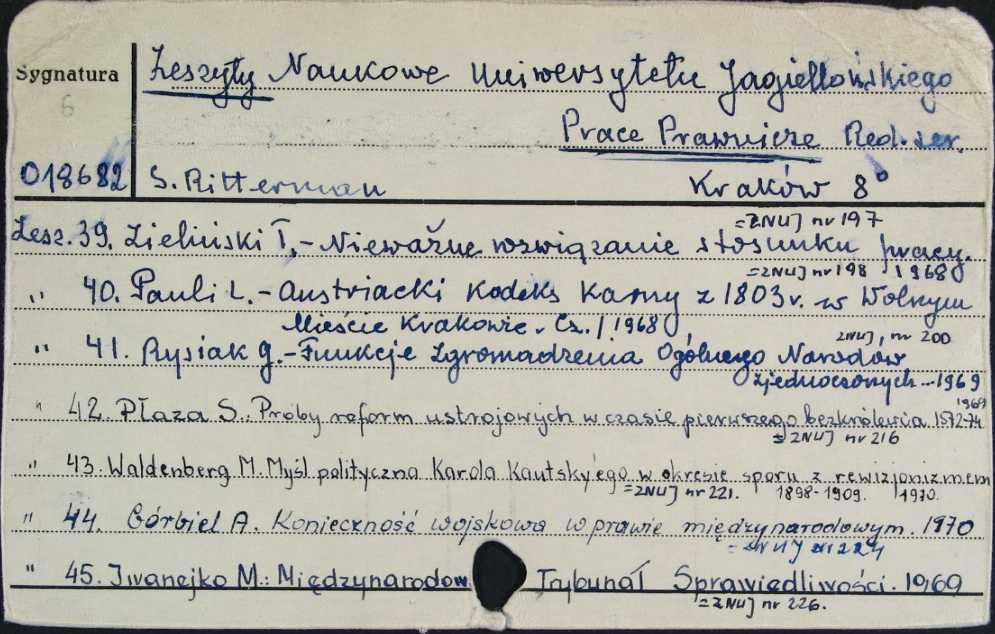 Zeszyty Naukowe Uniwersytetu Jagiellońskiego
Sygnatura
6
Prace Prawnicze Red. ser.
018682 S. Ritterman Kraków 8°
=ZNUJ nr 197
Zesz. 39. Zieliński T. - Nieważne rozwiązanie stosunku pracy.
=ZNUJ nr 198 1968
,, 40. Pauli L. - Austriacki Kodeks Karny z 1803 r. w Wolnym
Mieście Krakowie. Cz. I 1968
ZNUJ, nr 200
,, 41. Rysiak G. - Funkcje Zgromadzenia Ogólnego Narodów
Zjednoczonych - 1969
1969
,, 42. Płaza S.: Próby reform ustrojowych w czasie pierwszego bezkrólewia 1572-74
=ZNUJ nr 216
,, 43. Waldenberg M. Myśl polityczna Karola Kautsky'ego w okresie sporu z rewizjonizmem
=ZNUJ nr 221. 1898-1909. 1970.
,, 44. Górbiel A. Konieczność wojskowa w prawie międzynarodowym. 1970
=ZNUJ nr 224
,, 45. Iwanejko M.: Międzynarodow Trybunał Sprawiedliwości. 1969
=ZNUJ nr 226.